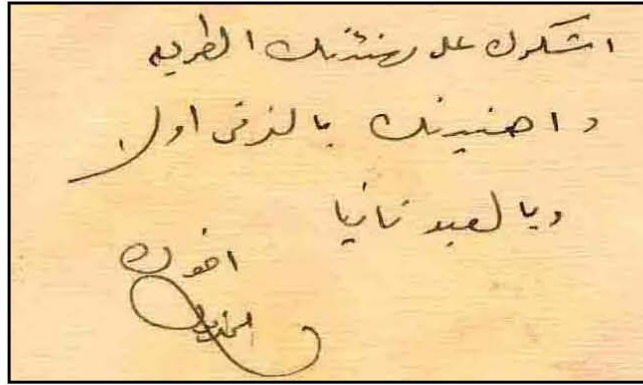 اشكرك على تهنئتك الطريفه
واهنيك بالذوق اولا
وبالعيد ثانيا
اخوك